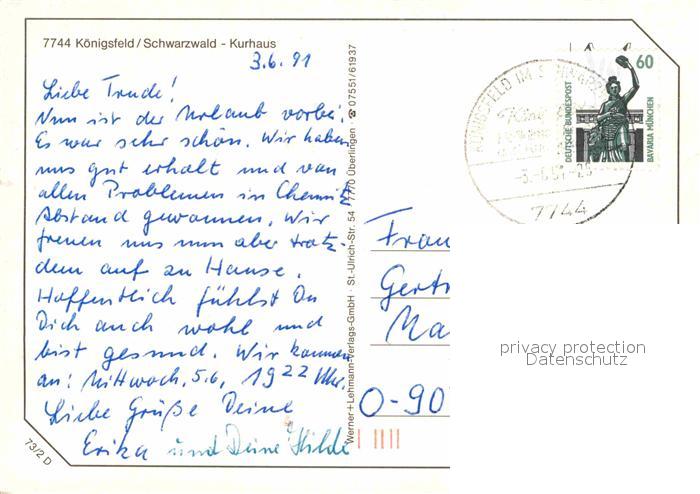 7744 Königsfeld/Schwarzwald - Kurhaus
3.6.91
Liebe Trude!
Nun ist der Urlaub vorbei.
Es war sehr schön. Wir haben
uns gut erholt und von
allen Problemen in Chemnitz
Abstand gewonnen. Wir
freuen uns nun aber trotz-
dem auf zu Hause.
Hoffentlich fühlst Du
Dich auch wohl und
bist gesund. Wir kommen
an: Mittwoch, 5.6, 1922 Uhr.
Liebe Grüße Deine
Erika und Deine Hilde
73/2 D
Werner+Lehmann-Verlags-GmbH · St.-Ulrich-Str. 54 · 7770 Überlingen ☎ 07551/61937
KÖNIGSFELD IM SCHWARZ
-3.-6.91-
7744
60
DEUTSCHE BUNDESPOST
BAVARIA MÜNCHEN
Frau
Gert
Ma
O-90
privacy protection
Datenschutz